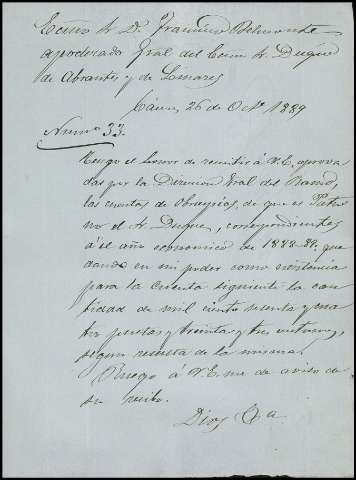 Excmo Sr D. Francisco Belmonte
apoderado Gral del Excmo Sr. Duque
de Abrantes y de Linares
26 de Octe 1889
Numo 33.
Tengo el honor de remitir á V.E. aproba
das por la Direccion Gral del Ramo,
las cuentas de obras pias, de que es Patro
no el Sr Duque, correspondientes
á el año economico de 1888-89, que
dando en mi poder como existencia
para la cuenta siguiente la can
tidad de mil ciento y cua
tro pesetas y treinta y tres centimos,
segun resulta de la misma.
Ruego á V.E. me de aviso de
su recibo.
Dios &a